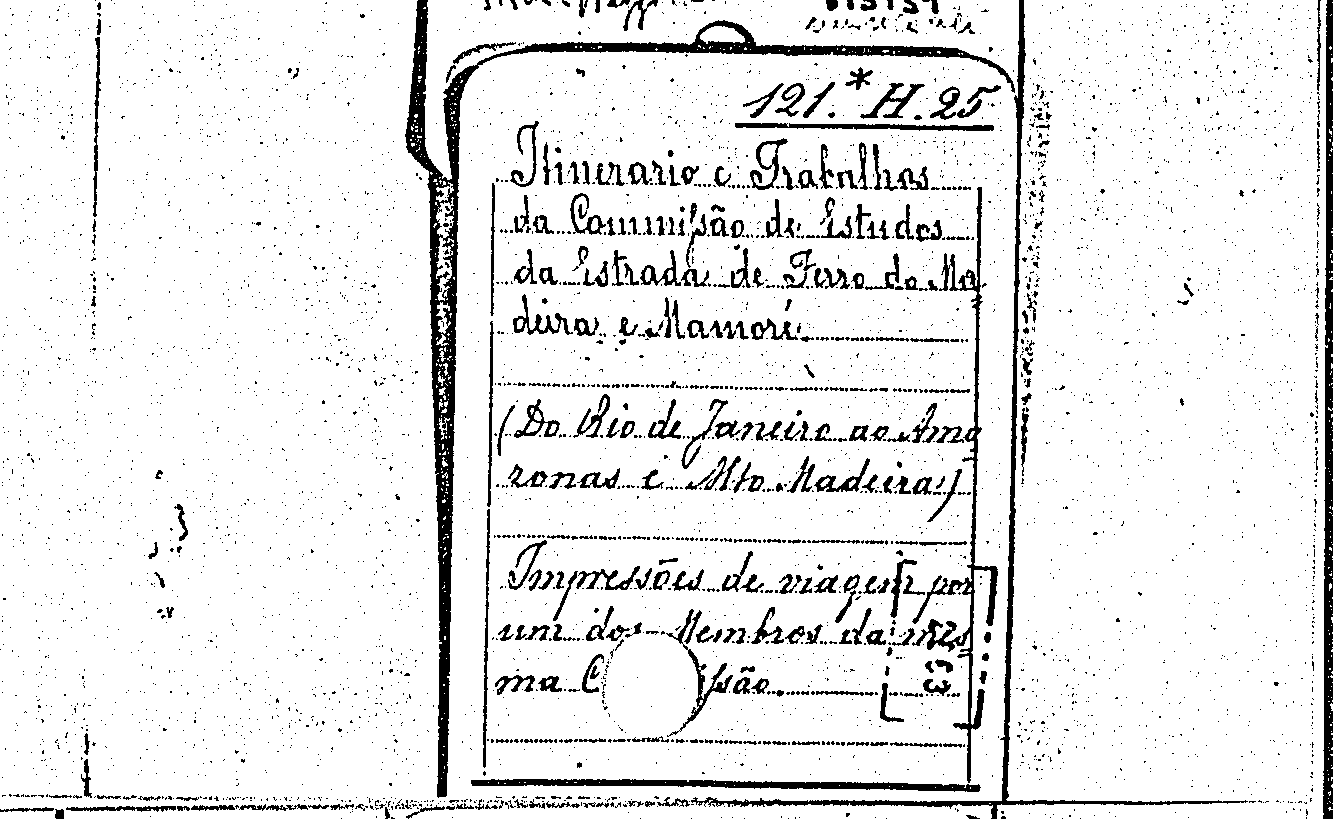 121.* H. 25
Itinerario e Trabalhos
da Commiſsão de Estudos
da Estrada de Ferro do Ma=
deira e Mamoré.
(Do Rio de Janeiro ao Ama=
zonas e Alto Madeira)
Impressões de viagem por
um dos Membros da mes=
ma C ſsão.